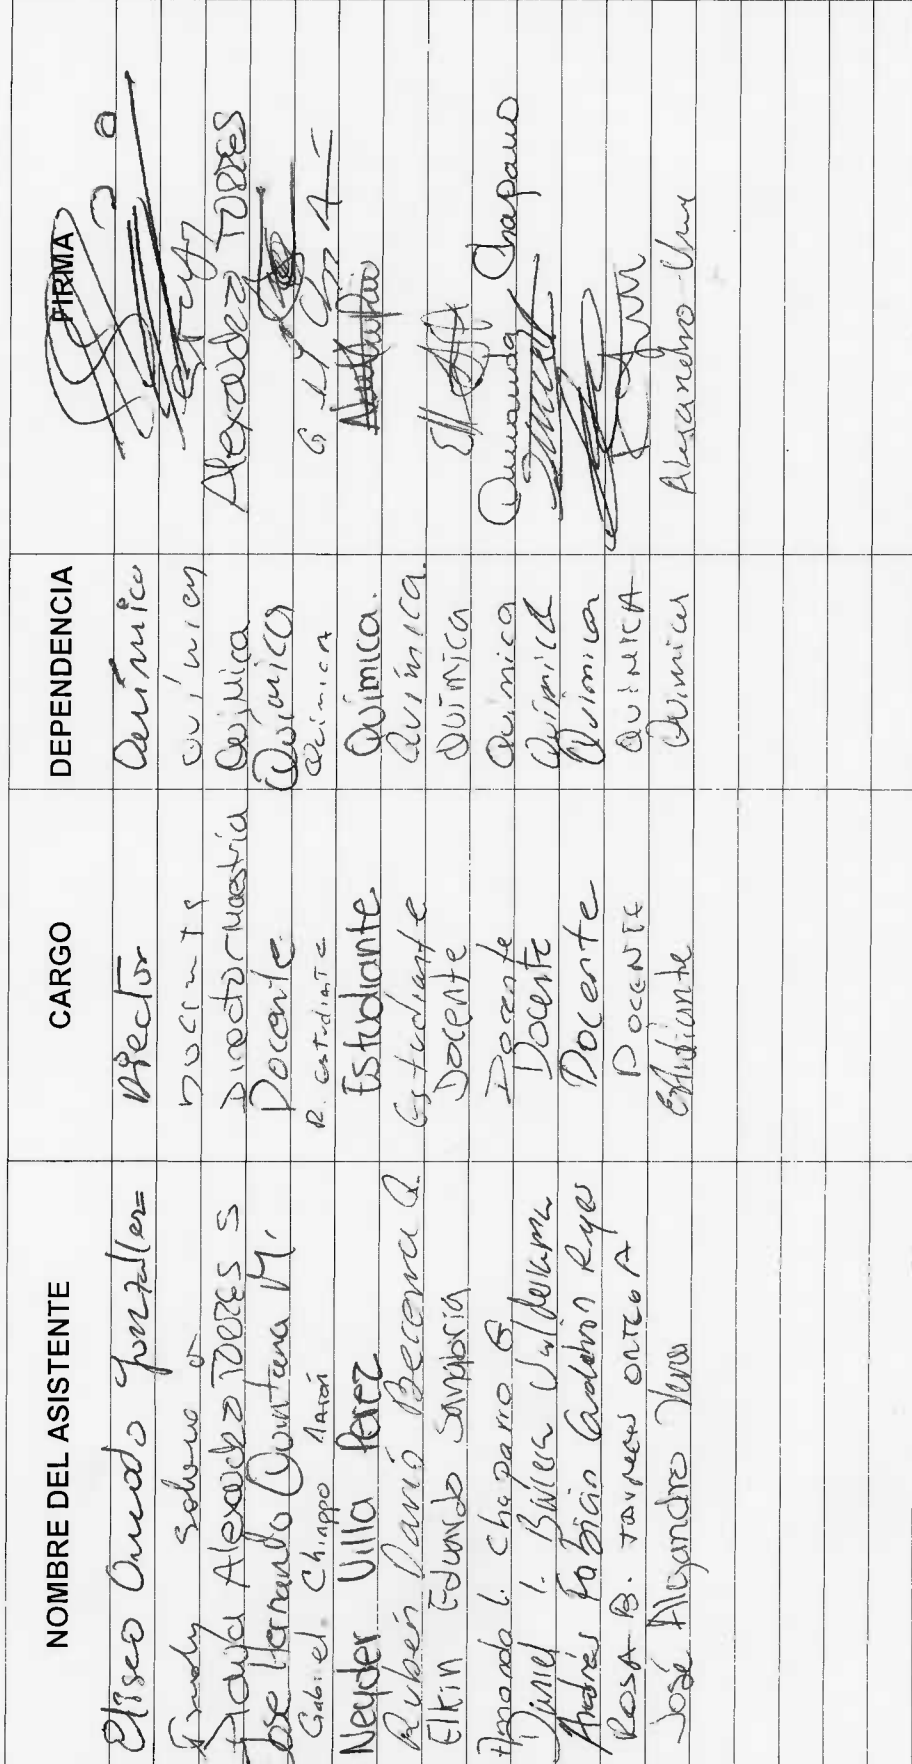 NOMBRE DEL ASISTENTE CARGO DEPENDENCIA FIRMA
Eliseo Amado González Director Química
Docente Química
Alexander TORRES S Director Maestría Química Alexander TORRES
José Hernando Quintana M. Docente Química
Gabriel Chinappo R. estudiante Química
Neyder Villa Pérez Estudiante Química.
Rubén Darío Becerra Q. Estudiante Química.
Elkin Eduardo Sanabria Docente Química
Amanda L. Chaparro G Docente Química Amanda Chaparro
Daniel L. Barrera Valderrama Docente Química
Andrés Fabián Reyes Docente Química
ROSA B. ORTEGA A DOCENTE QUIMICA
José Alejandro Vera Estudiante Química Alejandro Vera